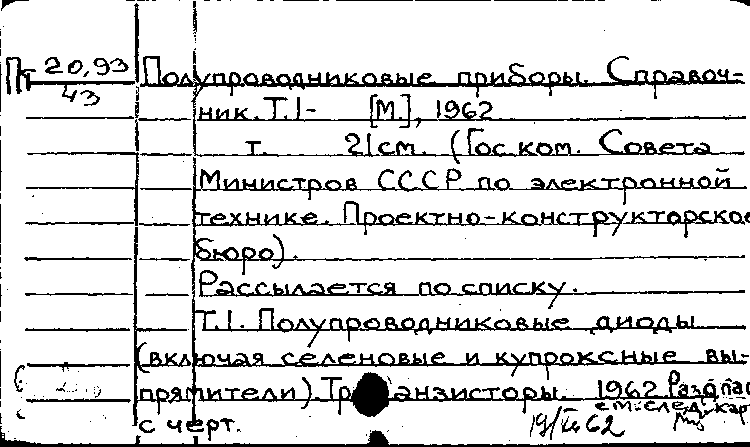 Пт 20,93 Полупроводниковые приборы. Справоч-
43
ник. Т.1- [М.], 1962
т. 21см. (Гос.ком. Совета
Министров СССР по электронной
технике. Проектно-конструкторское
бюро).
Рассылается по списку.
Т.1. Полупроводниковые диоды
(включая селеновые и купроксные вы-
прямители). Транзисторы. 1962. Разд. паг.
с черт. см. след. кар
62